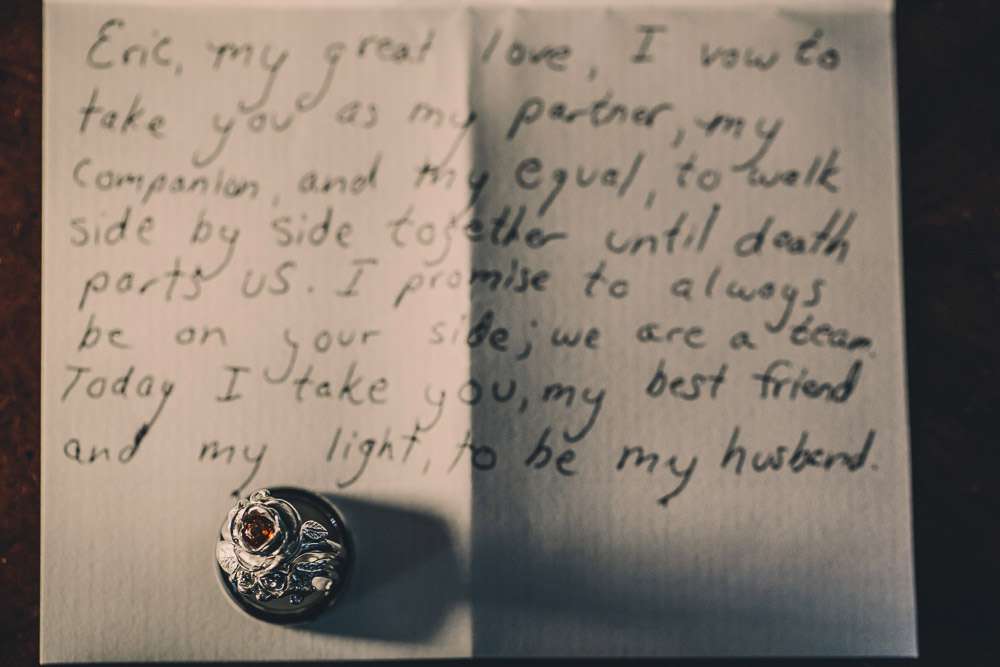 Eric, my great love, I vow to
take you as my partner, my
companion, and my equal, to walk
side by side together until death
parts us. I promise to always
be on your side; we are a team.
Today I take you, my best friend
and my light, to be my husband.